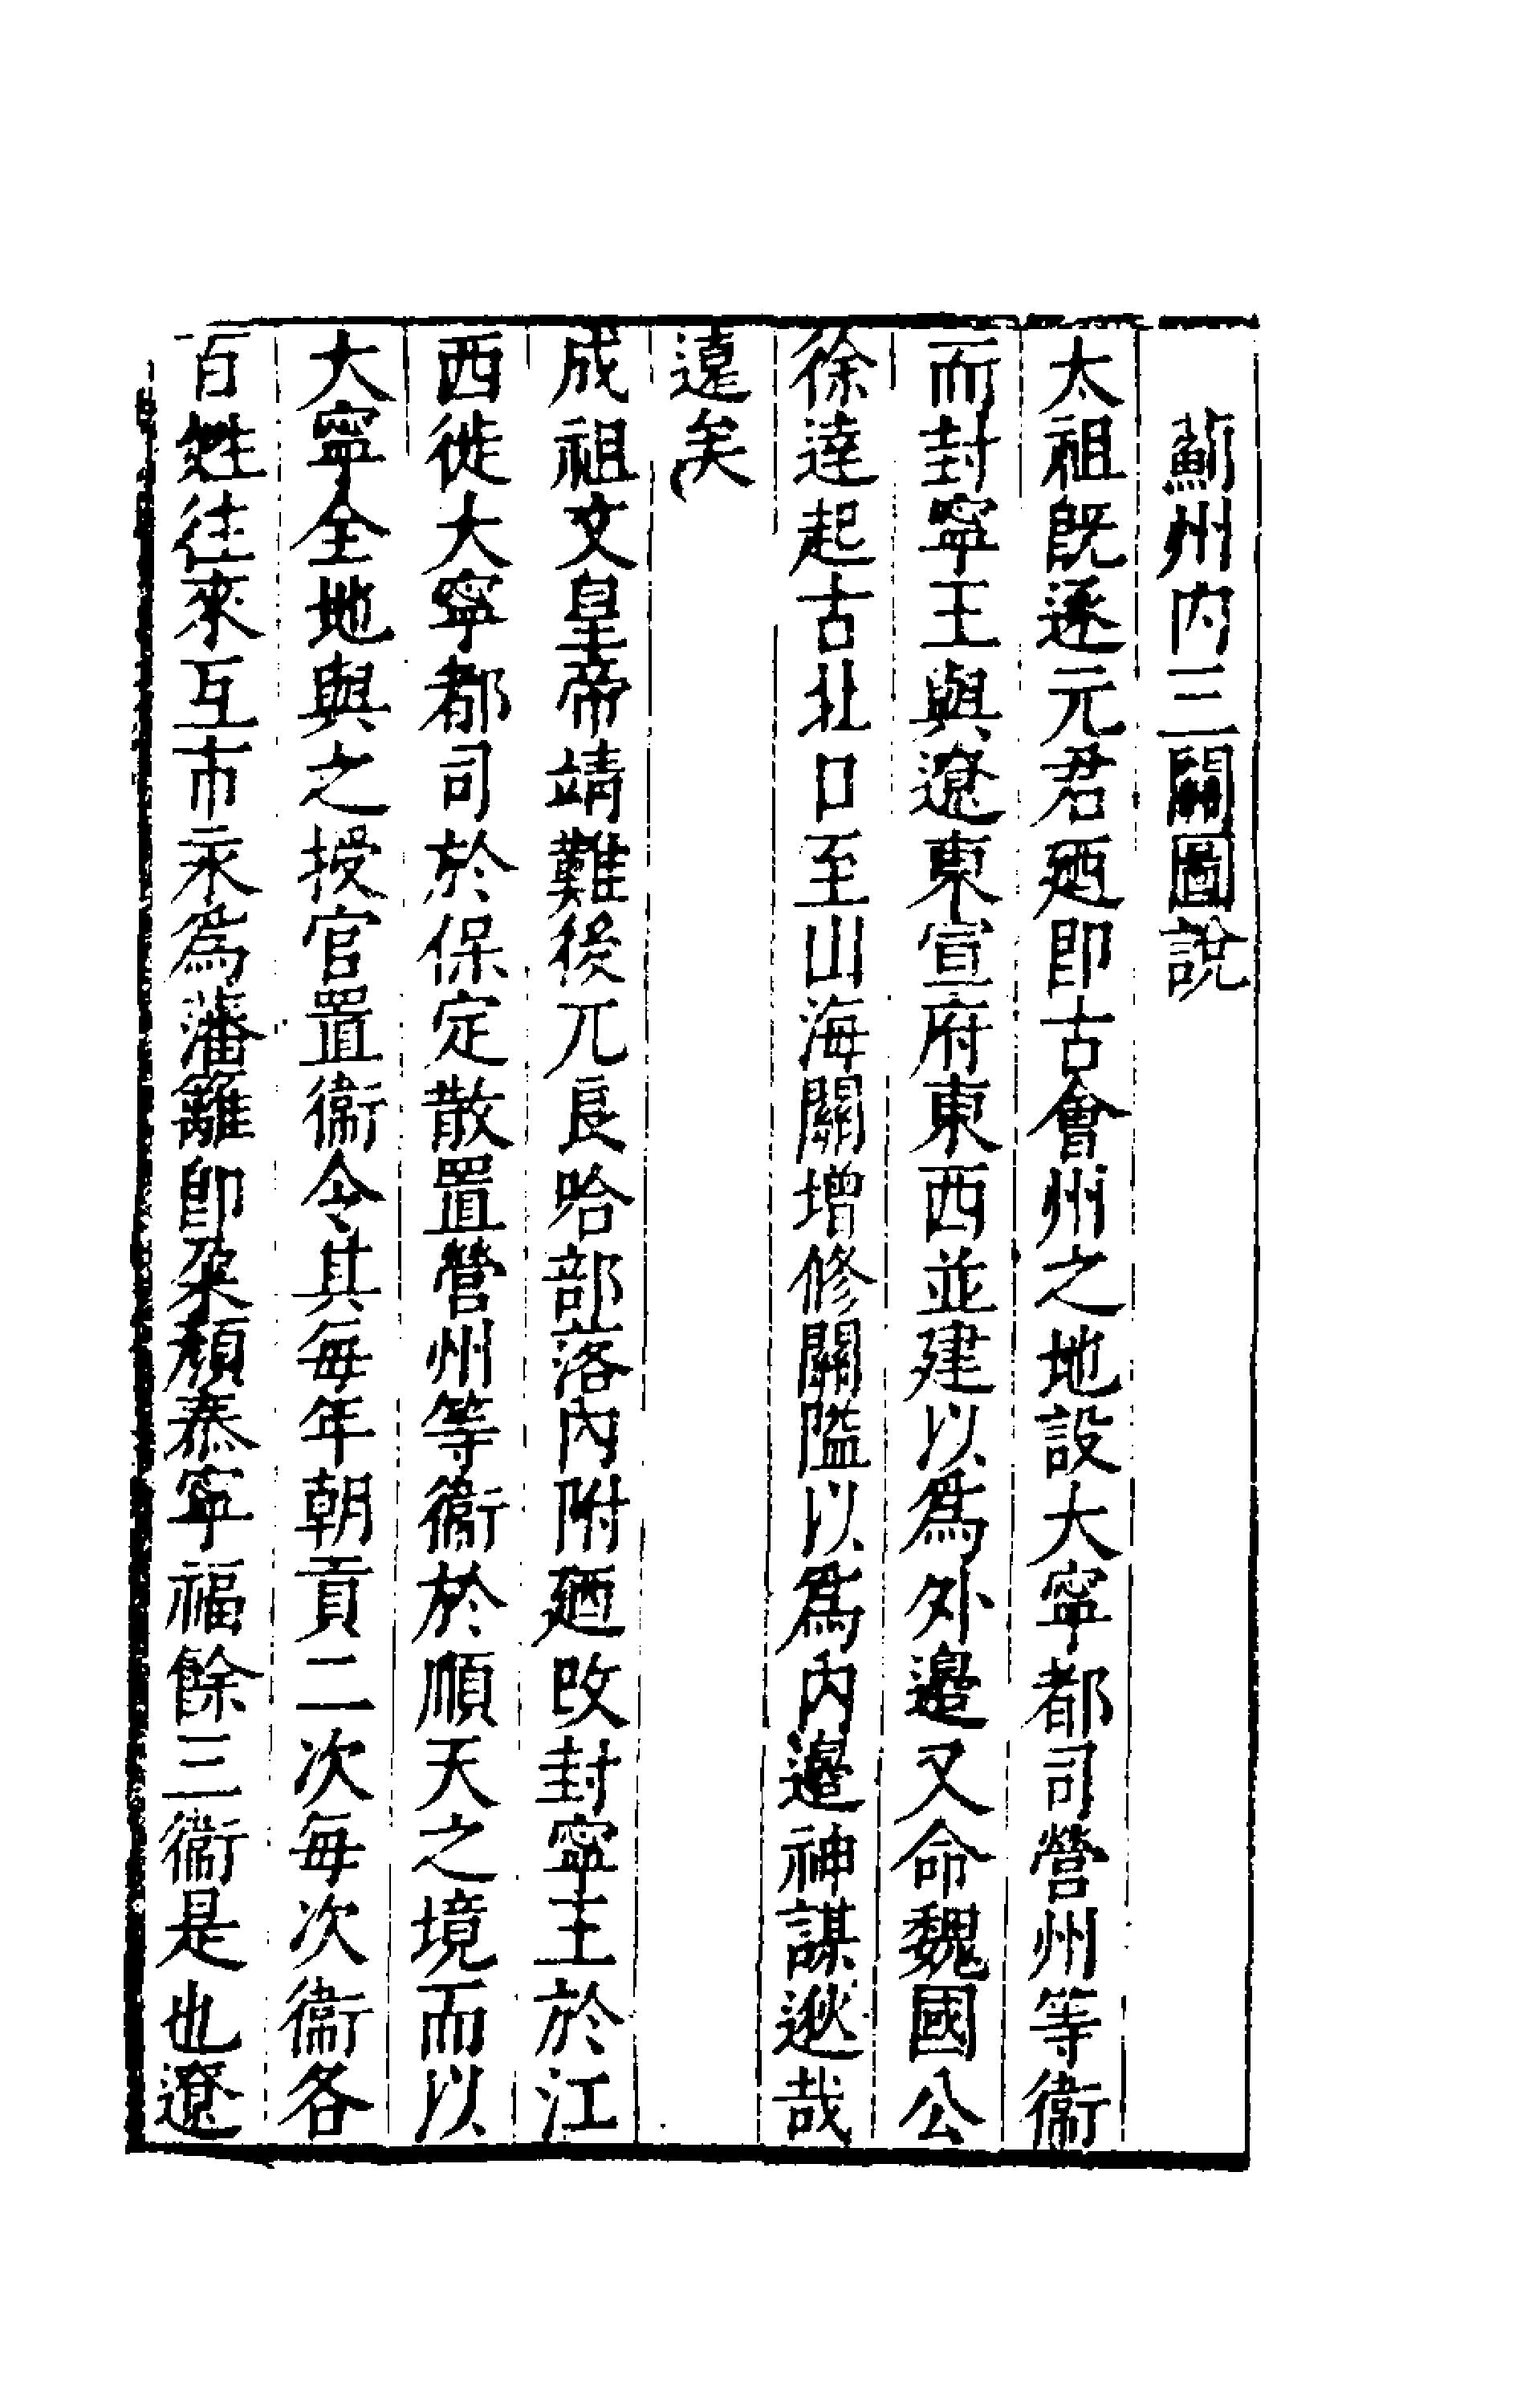 薊州内三關圖說
太祖既逐元君廼即古會州之地設大寧都司營州等衞
而封寧王與遼東宣府東西並建以爲外邊又命魏國公
徐達起古北口至山海關增修關隘以爲内邊神謀逖哉
遠矣
成祖文皇帝靖難後兀良哈部落内附廼改封寧王於江
西徙大寧都司於保定散置營州等衞於順天之境而以
大寧全地與之授官置衞令其每年朝貢二次每次衞各
百姓往來互市永爲藩籬即朶顏泰寧福餘三衞是也遼